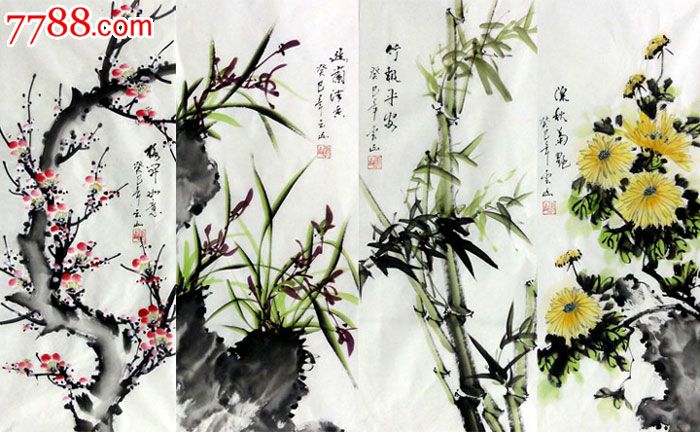 7788.com
梅開如意
癸巳年云山
幽蘭清香
癸巳年云山
竹報平安
癸巳年雲山
深秋菊艷
癸巳年雲山